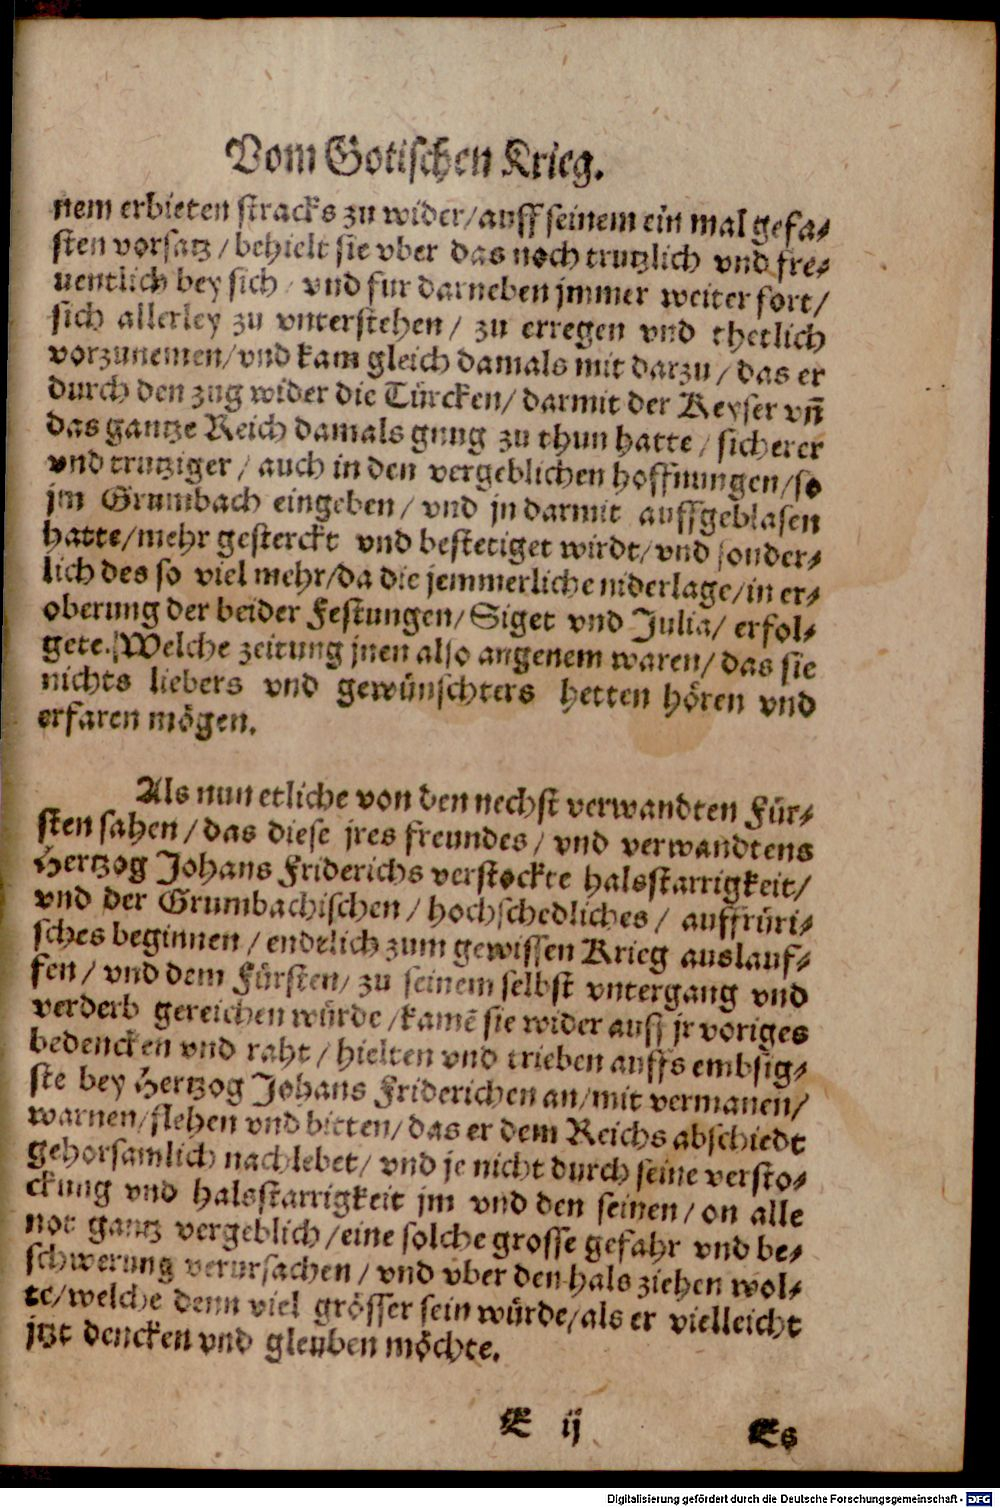 Vom Gotischen Krieg.
nem erbieten stracks zu wider/auff seinem ein mal gefa-
sten vorsatz/behielt sie vber das noch trutzlich vnd fre-
uentlich bey sich/vnd fur darneben jmmer weiter fort/
sich allerley zu vnterstehen/ zu erregen vnd thetlich
vorzunemen/vnd kam gleich damals mit darzu/das er
durch den zug wider die Türcken/darmit der Keyser vñ
das gantze Reich damals gnug zu thun hatte/sicherer
vnd trutziger/auch in den vergeblichen hoffnungen/so
jm Grumbach eingeben/vnd jn darmit auffgeblasen
hatte/mehr gesterckt vnd bestetiget wirdt/vnd sonder-
lich des so viel mehr/da die jemmerliche niderlage/in er-
oberung der beider Festungen/Siget vnd Julia/ erfol-
gete. Welche zeitung jnen also angenem waren/das sie
nichts liebers vnd gewünschters hetten hören vnd
erfaren mögen.
Als nun etliche von den nechst verwandten Für-
sten sahen/das diese jres freundes/vnd verwandtens
Hertzog Johans Friderichs verstockte halsstarrigkeit/
vnd der Grumbachischen/hochschedliches/ auffrüri-
sches beginnen/endtlich zum gewissen Krieg auslauf-
fen/vnd dem Fürsten/zu seinem selbst vntergang vnd
verderb gereichen würde/kamẽ sie wider auff jr voriges
bedencken vnd raht/hielten vnd trieben auffs embsig-
ste bey Hertzog Johans Friderichen an/mit vermanen/
warnen/flehen vnd bitten/das er dem Reichs abschiedt
gehorsamlich nachlebet/vnd je nicht durch seine versto-
ckung vnd halsstarrigkeit jm vnd den seinen/on alle
not gantz vergeblich/eine solche grosse gefahr vnd be-
schwerung verursachen/vnd vber den hals ziehen wol-
te/welche denn viel grösser sein würde/als er vielleicht
jtzt dencken vnd gleuben möchte.
E ij Es
Digitalisierung gefördert durch die Deutsche Forschungsgemeinschaft - DFG